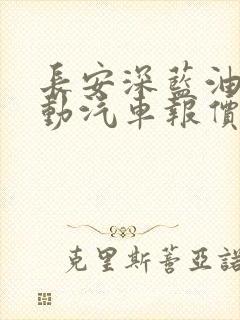 長安深藍油
動汽車報價
克里斯蒂亞諾